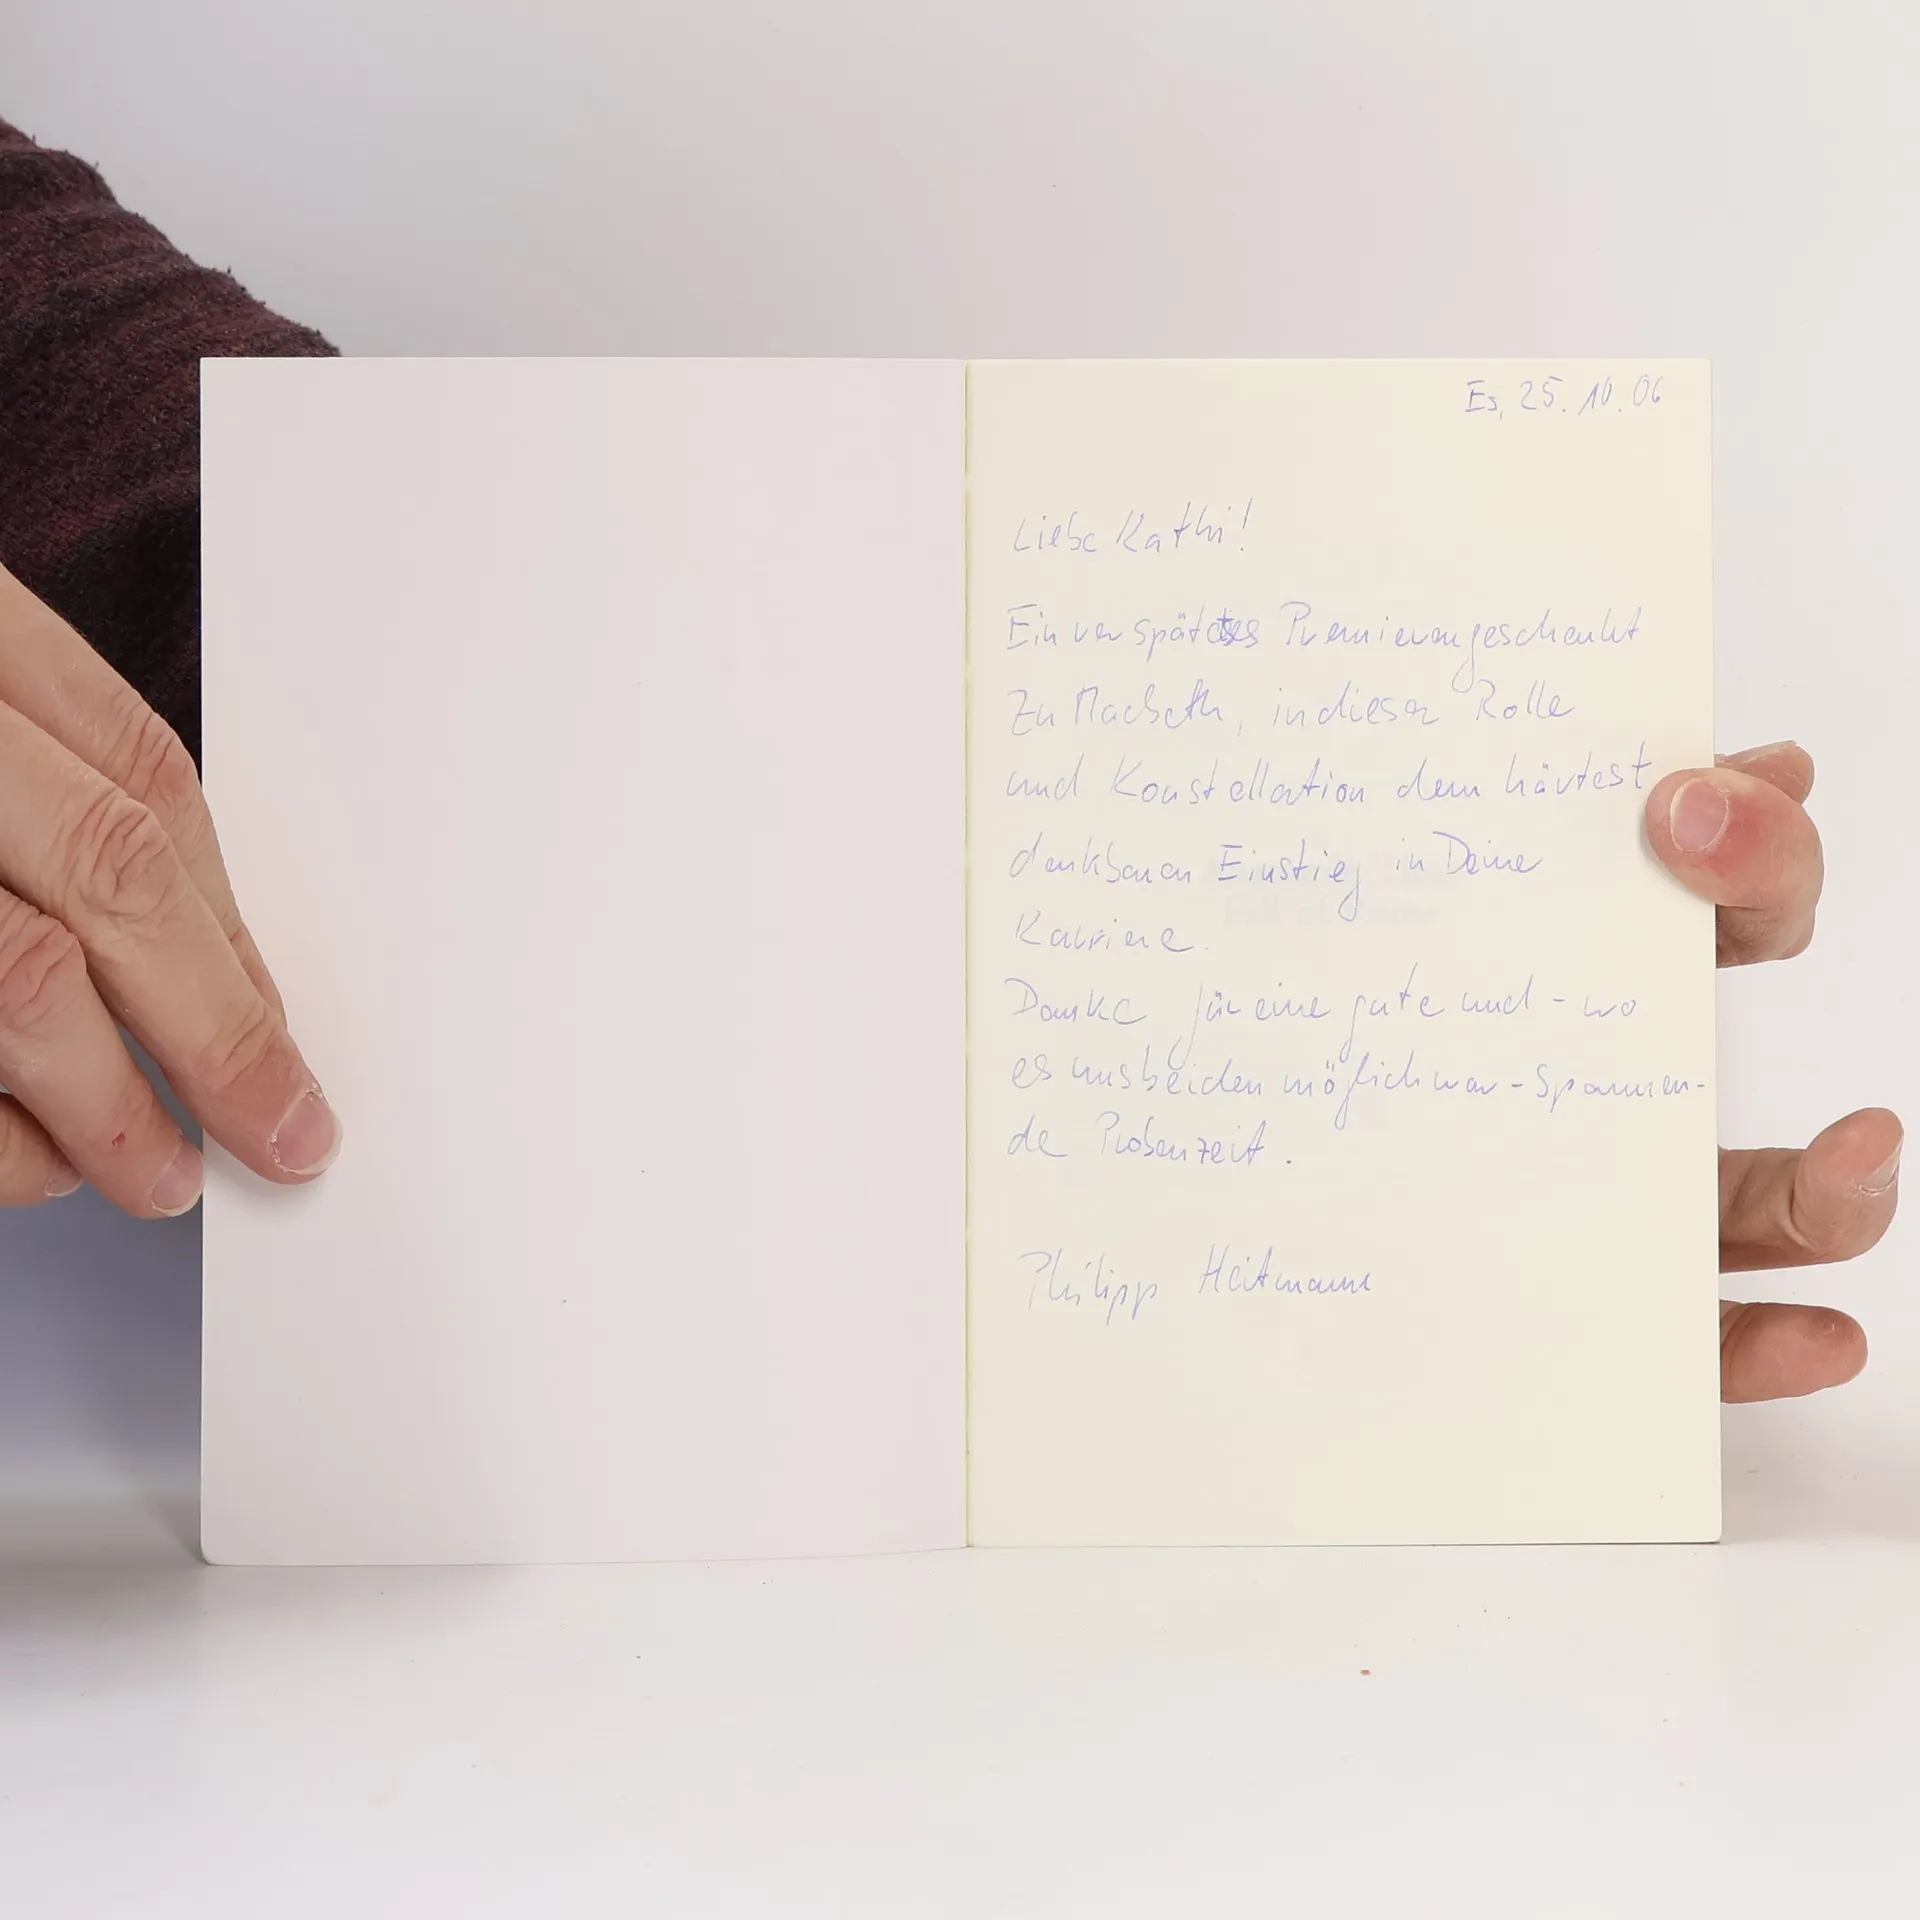 Es, 25.10.06
Liebe Kathi!
Ein verspätetes Premierengeschenkt
zu Macbeth, in dieser Rolle
und Konstellation dem härtest
denkbaren Einstieg in Deine
Karriere.
Danke für eine gute und - wo
es uns beiden möglich war - Spannen-
de Probenzeit.
Philipp Heitmann